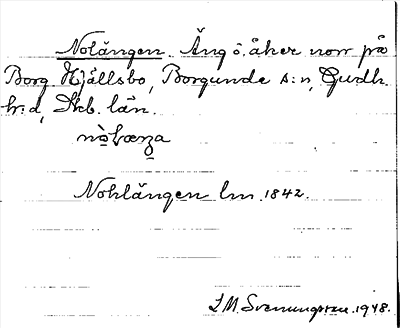 Nolängen. Äng o. åker norr på
Borg Hjällsbo, Borgunda s:n, Gudh.
h:d, Skb. län.
Nohlängen lm. 1842.
I. M. Svennungsson. 1948.